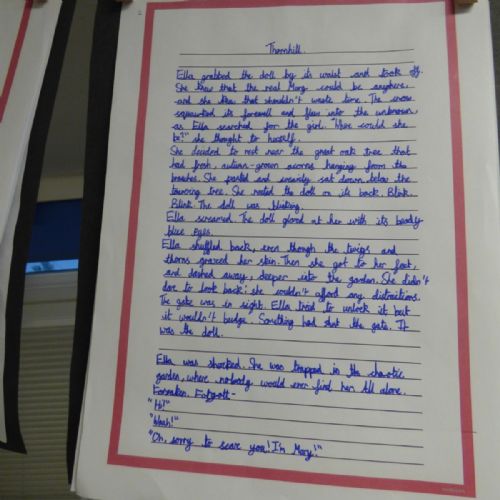 Thornhill.
Ella grabbed the doll by its waist and took off.
She knew that the real Mary could be anywhere,
and she knew that shouldn't waste time. The crow
squawked its farewell and flew into the unknown,
as Ella searched for the girl. "Where could she
be?" she thought to herself.
She decided to rest near the great oak tree that
had fresh, autumn-grown acorns hanging from the
branches. She panted and uneasily sat down below the
towering tree. She rested the doll on its back. Blink.
Blink. The doll was blinking.
Ella screamed. The doll glared at her with its beady
blue eyes.
Ella shuffled back, even though the twigs and
thorns grazed her skin. Then she got to her feet,
and dashed away, deeper into the garden. She didn't
dare to look back; she couldn't afford any distractions.
The gate was in sight. Ella tried to unlock it but
it wouldn't budge. Something had shut the gate. It
was the doll.
Ella was shocked. She was trapped in the chaotic
garden, where nobody would ever find her. All alone.
Forsaken. Forgott-
"Hi!"
"Waah!"
"Oh, sorry to scare you! I'm Mary!"